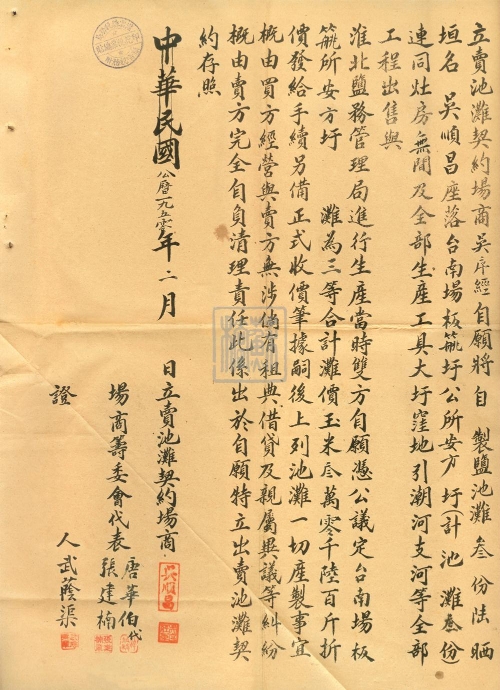 立賣池灘契約場商吳序經自願將自 製鹽池灘叁份陆晒
垣名 吳順昌座落台南場板䈥圩公所安方 圩(計池灘叁份)
連同灶房無間及全部生產工具大圩窪地引潮河支河等全部
工程出售與
淮北鹽務管理局進行生產當時雙方自願憑公議定台南場板
䈥所安方圩 灘為三等合計灘價玉米叁萬零千陸百斤折
價發給手續另備正式收價筆據嗣後上列池灘一切產製事宜
概由買方經營與賣方無涉倘有租典借貸及親屬異議等糾紛
概由賣方完全自負清理責任此係出於自願特立出賣池灘契
約存照
中華民國公曆一九五零年二月 日立賣池灘契約場商 吳順昌
場商籌委會代表 唐華伯代
張建楠
證 人 武蔭渠